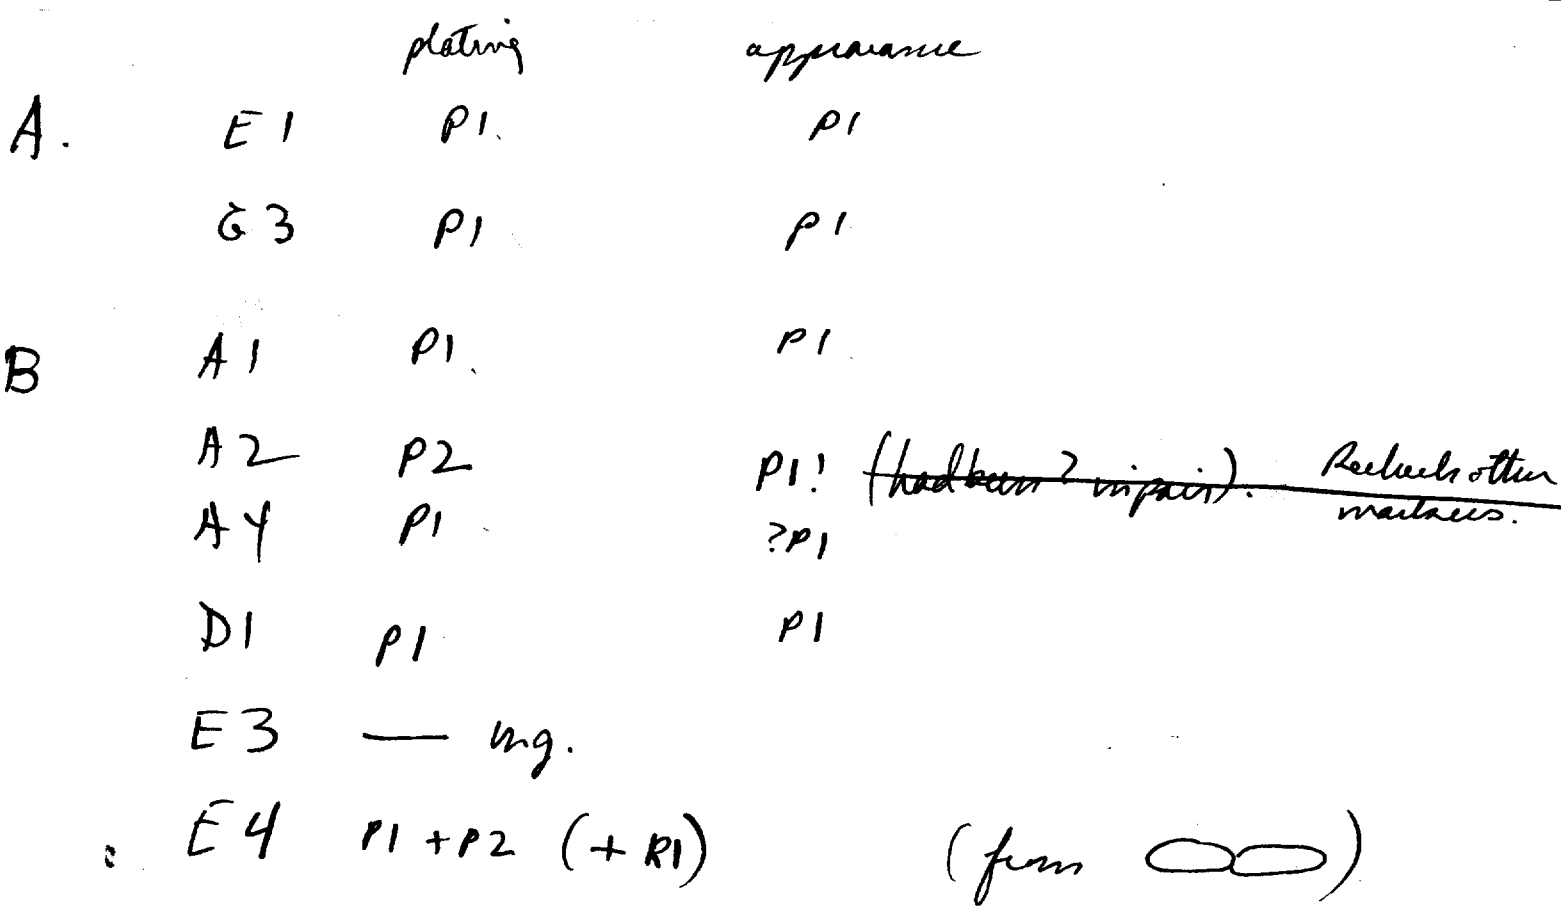 plating appearance
A. E1 P1. P1
G3 P1 P1
B A1 P1. P1.
A2 P2 P1! (had been ? in pair). Recheck other
markers.
A4 P1 ?P1
D1 P1 P1
E3 — ng.
E4 P1 + P2 (+ R1) (from )